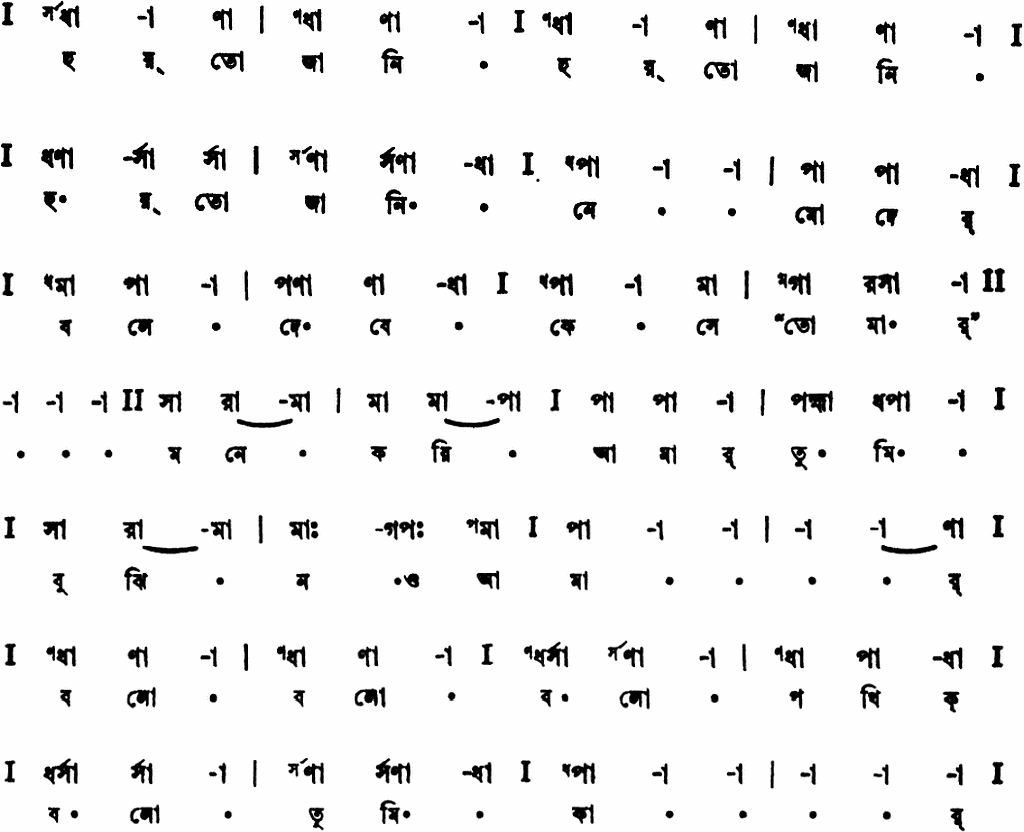 I র্সধা -1 ণা | ণধা ণা -1 I ণধা -1 ণা | ণধা ণা -1 I
হ য়্ তো জা নি • হ য়্ তো জা নি •
I ধণা -র্সা র্সা | র্সণা র্সণা -ধা I ধপা -1 -1 | পা পা -ধা I
হ• য়্ তো জা নি• • নে • • মো দে র্
I ধমা পা -1 | পণা ণা -ধা I ধপা -1 মা | মগা রসা -1 II
ব লে • দে• বে • কে • সে “তো মা• র্”
-1 -1 -1 II সা রা -মা | মা মা -পা I পা পা -1 | পহ্মা ধপা -1 I
• • • ম নে • ক রি • আ মা র্ তু• মি• •
I সা রা -মা | মাঃ -গপঃ পমা I পা -1 -1 | -1 -1 ণা I
বু ঝি • ন •ও আ মা • • • • র্
I ণধা ণা -1 | ণধা ণা -1 I ণধর্সা র্সণা -1 | ণধা পা -ধা I
ব লো • ব লো • ব• লো • প থি ক্
I ধর্সা র্সা -1 | র্সণা র্সণা -ধা I ধপা -1 -1 | -1 -1 -1 I
ব• লো • তু মি• • কা • • • • র্